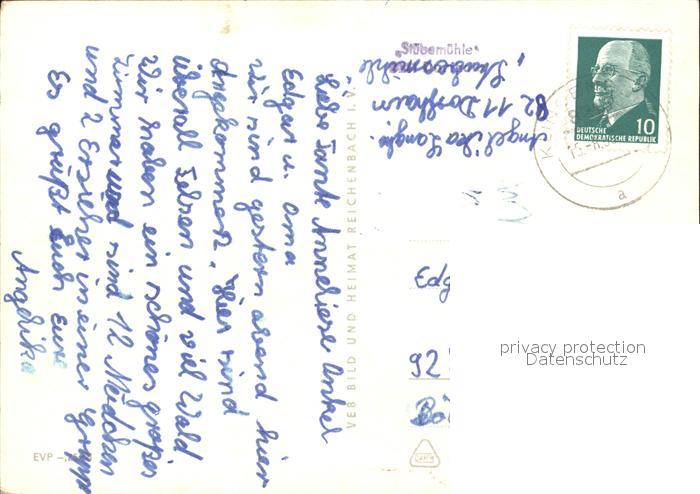 Liebe Tante Anneliese Onkel
Edgar u. Oma
wir sind gestern abend hier
angekommen. Hier sind
überall Felsen und viel Wald
Wir haben ein schönes großes
Zimmer und sind 12 Mädchen
und 2 Erzieher in einer Gruppe
Es grüßt Euch Eure
Angelika
EVP
VEB BILD UND HEIMAT REICHENBACH I. V.
Angelika
82 11 Dorfhain
"Stübemühle"
DEUTSCHE
DEMOKRATISCHE REPUBLIK
10
a
Edg
92
privacy protection
Datenschutz